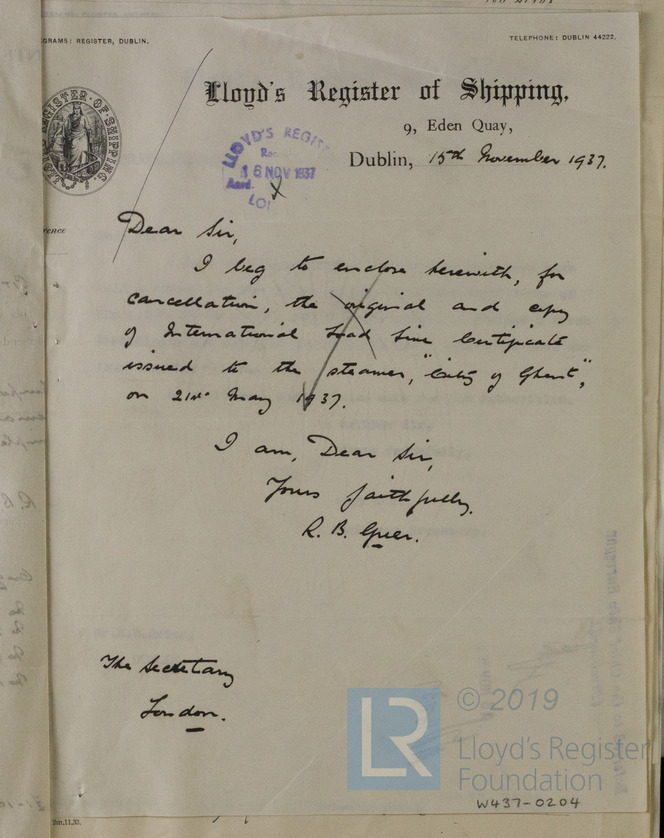 GRAMS: REGISTER, DUBLIN.
TELEPHONE: DUBLIN 44222.
LLOYD'S REGISTER OF SHIPPING.
Lloyd's Register of Shipping,
9, Eden Quay,
Dublin, 15th November 1937.
LLOYD'S REGIST
Rec
16 NOV 1937
Aard.
LO
rence
Dear Sir,
I beg to enclose herewith, for
cancellation, the original and copy
of International Load Line Certificate
issued to the steamer, "City of Ghent",
on 21st May 1937.
I am, Dear Sir,
Yours faithfully,
R. B. Grier.
The Secretary
London.
LR
© 2019
Lloyd's Register
Foundation
W437-0204
2m,11,33.